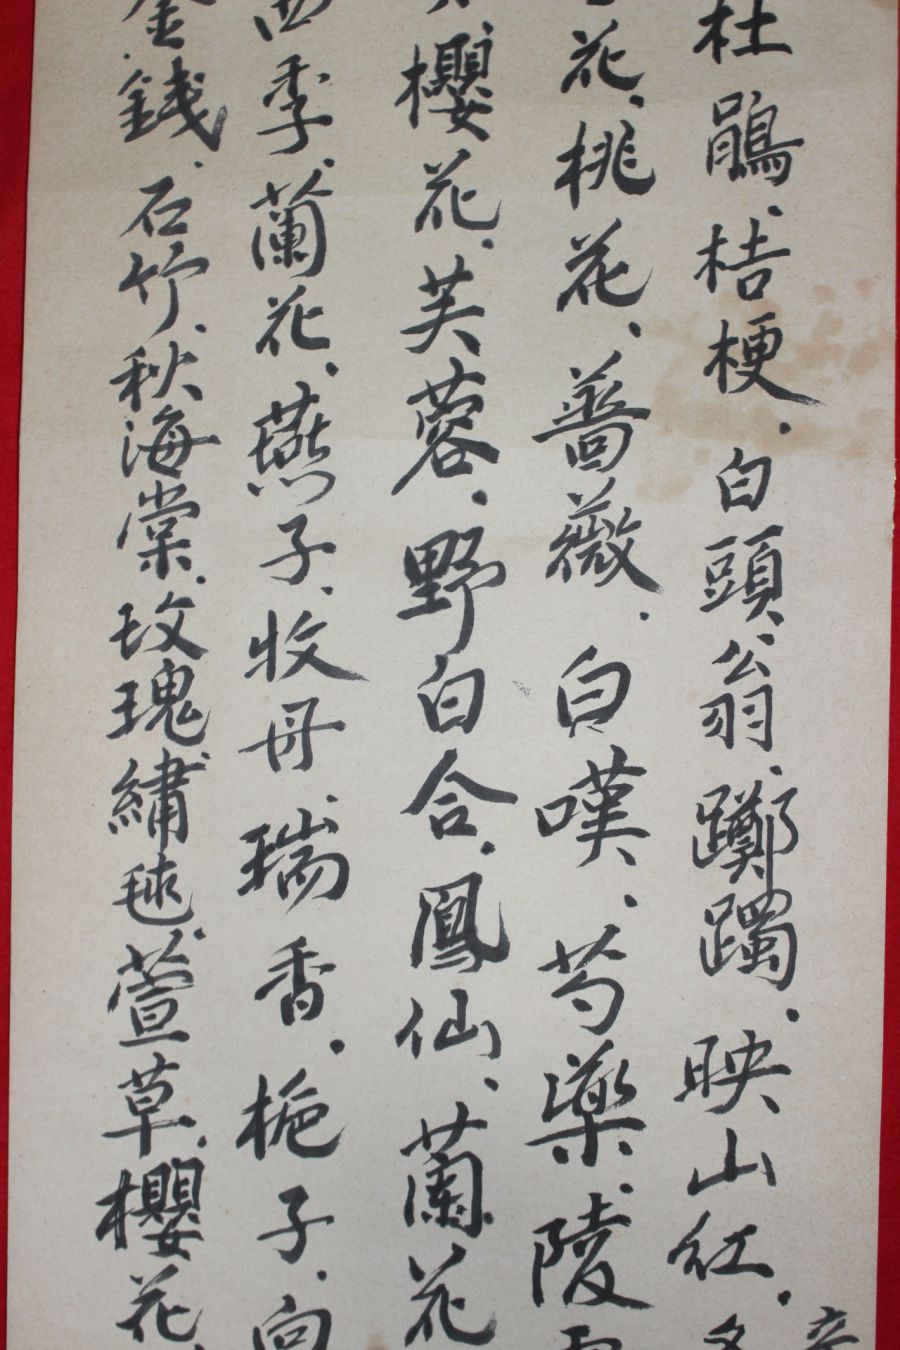 杜鵑、桔梗、白頭翁、躑躅、映山紅、
花、桃花、薔薇、白嘆、芍藥、陵
櫻花、芙蓉、野白合、鳳仙、蘭花
四季、蘭花、燕子、收丹、瑞香、梔子、向
金錢、石竹、秋海棠、玫瑰、繡毬、萱草、櫻花、